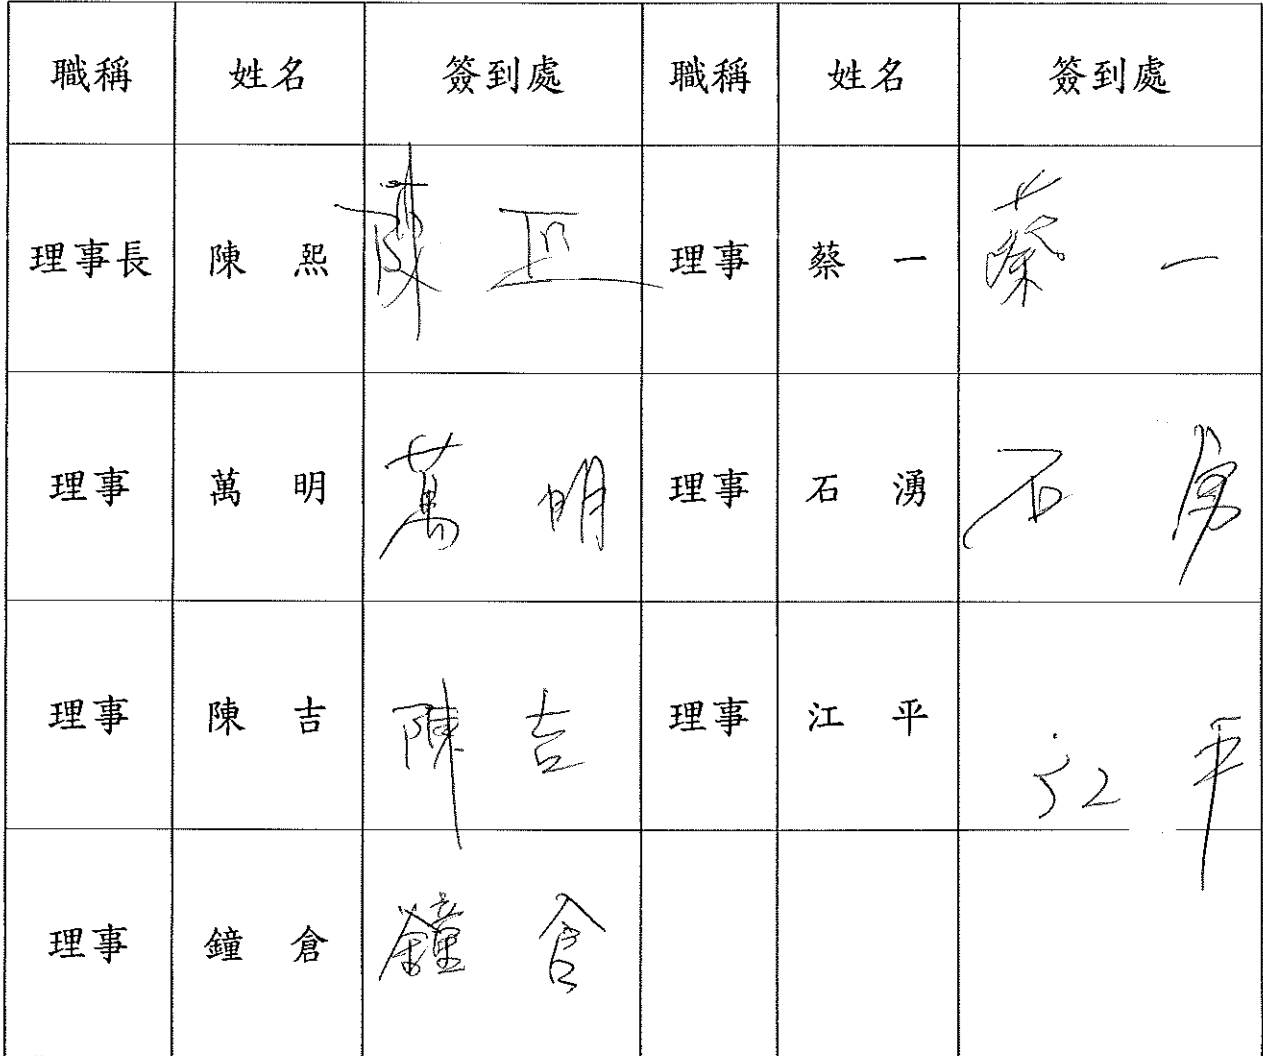 職稱 姓名 簽到處 職稱 姓名 簽到處
理事長 陳 熙 陳 理事 蔡 一 蔡 一
理事 萬 明 萬 明 理事 石 湧 石
理事 陳 吉 陳 吉 理事 江 平 江 平
理事 鐘 倉 鐘 倉